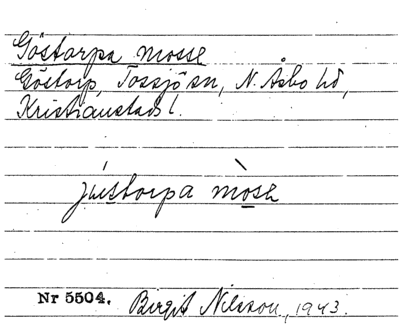 Göstorpa mosse
Göstorp, Tossjö sn, N. Åsbo hd,
Kristianstads l.
mòse
Nr 5504. Birgit Nilsson, 1943.